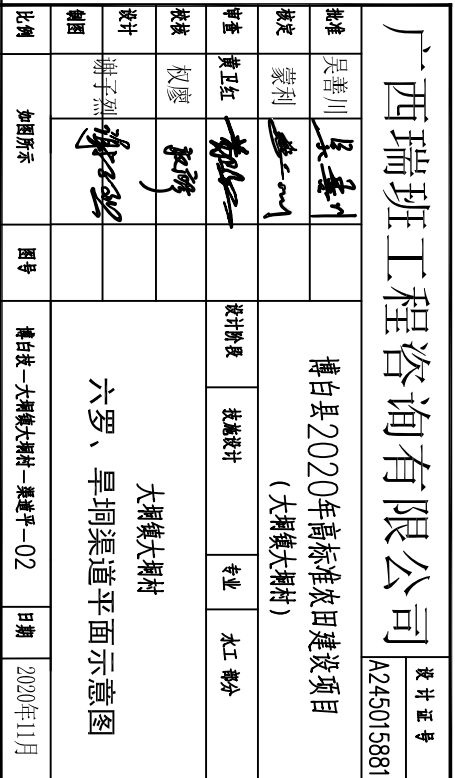 广西瑞班工程咨询有限公司
设计证号
A245015881
批准 吴善川
核定 蒙利
审查 黄卫红
校核 权廖
设计 谢子烈
制图
博白县2020年高标准农田建设项目
(大垌镇大垌村)
设计阶段 技施设计 专业 水工 部分
大垌镇大垌村
六罗、旱垌渠道平面示意图
比例 如图所示 图号 博白技—大垌镇大垌村—渠道平—02 日期 2020年11月